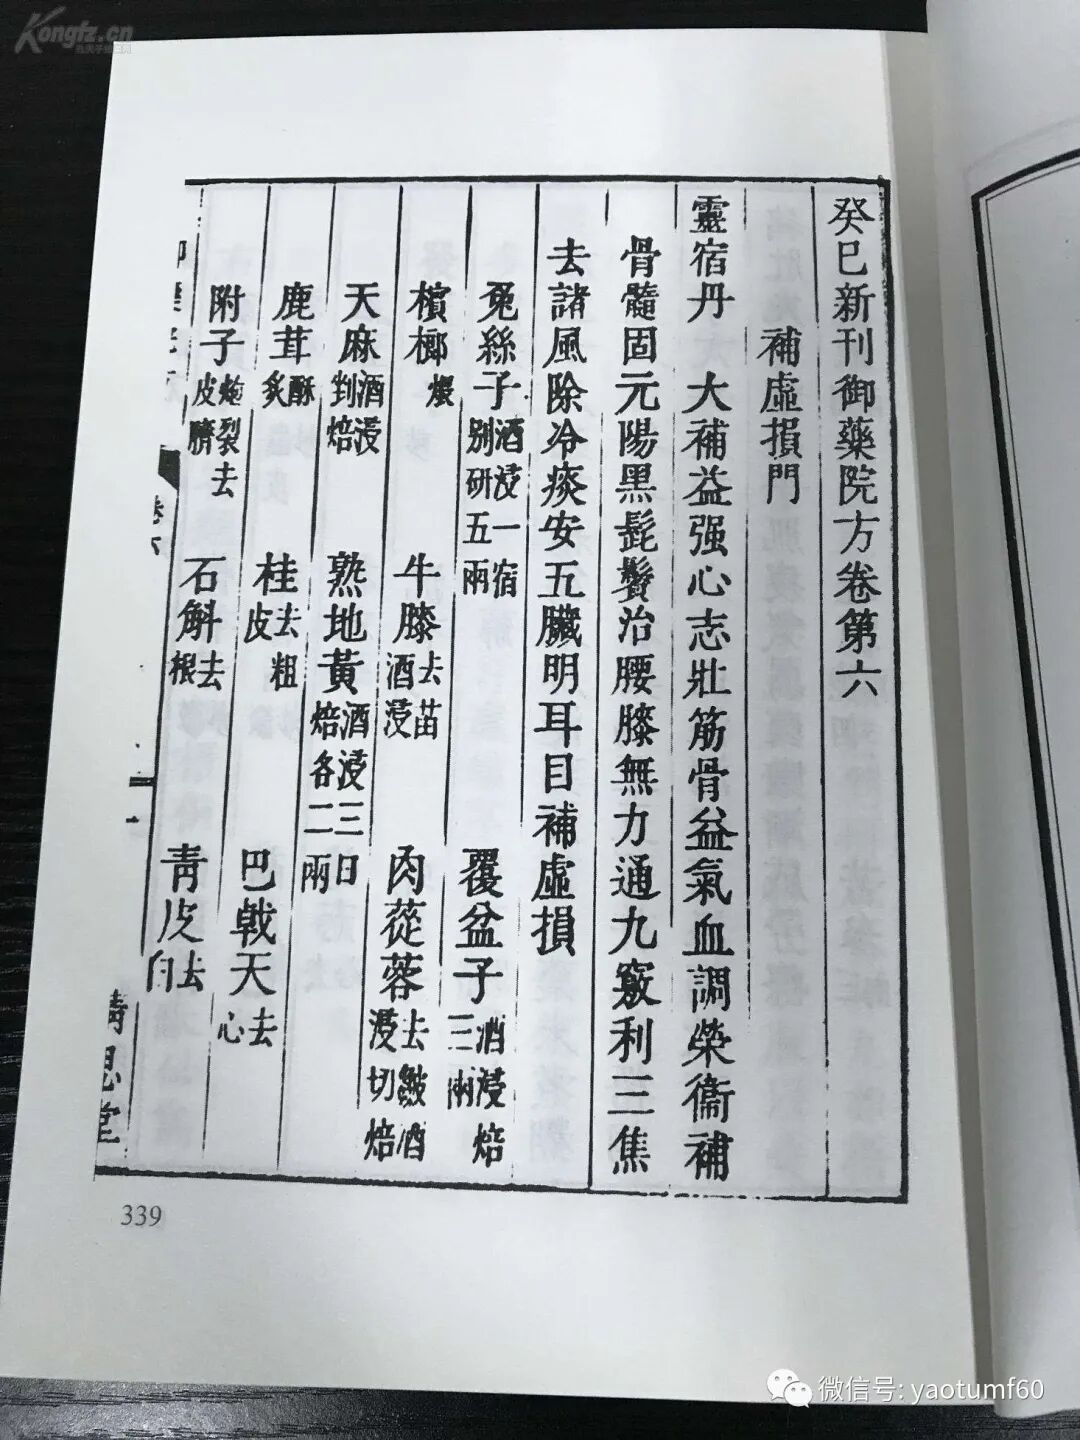 癸巳新刊御藥院方卷第六
補虛損門
靈宿丹 大補益强心志壯筋骨益氣血調榮衞補
骨髓固元陽黑髭鬢治腰膝無力通九竅利三焦
去諸風除冷痰安五臟明耳目補虛損
兔絲子酒浸一宿別研五兩 覆盆子酒浸焙三兩
檳榔煨 牛膝去苗酒浸 肉蓯蓉去皺酒浸切焙
天麻酒浸剉焙 熟地黃酒浸三日焙各二兩
鹿茸酥炙 桂去粗皮 巴戟天去心
附子炮裂去皮臍 石斛去根 靑皮去白
卷六
精思堂
339
Kongfz.cn
微信号: yaotumf60